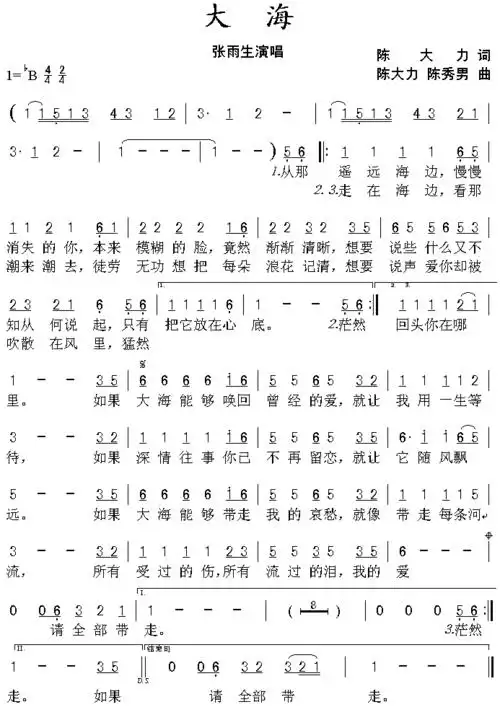 大 海
张雨生演唱
陈 大 力 词
1=♭B 4/4 2/4
陈大力 陈秀男 曲
( 1 1 1 5 1 3 4 3 1 2 | 1 1 5 1 3 4 3 1 2 | 2 1
3· 1 2 2 - | 1 - - - | 1 - - - ) 5 6 ‖: 1 1 1 1 6 5
1.从那 遥 远 海 边,慢慢
2.3.走 在 海 边,看那
1 1 2 1 6 1 | 2 2 2 2 1 6 | 3 2 3 2 3 5 | 6 5 5 6 5 3
消失 的 你,本来 模糊 的 脸,竟然 渐渐 清晰,想要 说些 什么 又不
潮来 潮 去,徒劳 无功 想 把 每朵 浪花 记清,想要 说声 爱你 却被
2 3 2 1 6 5 6 | 1 1 1 1 6 | 1 - - 5 6 :‖ 1 1 1 1 2 1
知从 何说 起,只有 把它放在心 底。 2.茫然 回头你在哪
吹散 在风 里,猛然
1 - - 3 5 | 6 6 6 6 i 6 | 5 5 6 5 3 2 | 1 1 1 1 2
里。 如果 大 海 能 够 唤回 曾 经 的 爱,就让 我 用 一生 等
待, 如果 深 情 往 事 你已 不 再 留恋,就让 它 随 风飘
远。 如果 大 海 能 够 带走 我 的 哀愁,就像 带 走 每条 河
流, 所有 受 过 的 伤,所有 流 过 的泪,我的 爱
0 0 0 6 3 2 1 | 1 - - - | ( 8 ) | 0 0 0 5 6 :‖
请 全部 带 走。 3.茫然
1 - - 3 5 ‖ 1 - - - | 0 0 6 3 2 3 2 1 | 1 - - - ‖
D.S.
走。 如果 请 全部 带 走。